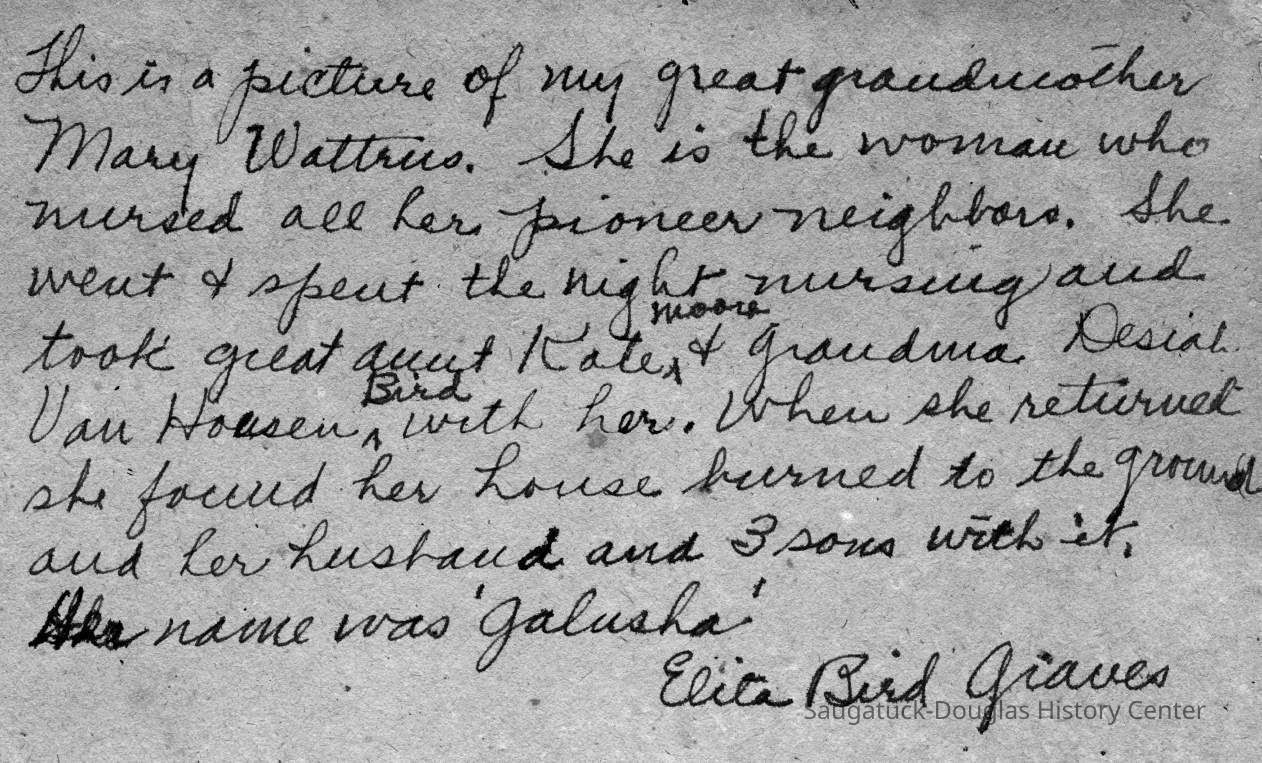 This is a picture of my great grandmother
Mary Wattrus. She is the woman who
nursed all her pioneer neighbors. She
went & spent the night nursing and
moore
took great aunt Kate & Grandma Desiah
Bird
Van Housen with her. When she returned
she found her house burned to the ground
and her husband and 3 sons with it.
name was 'Galusha'
Elita Bird Graves
Saugatuck-Douglas History Center